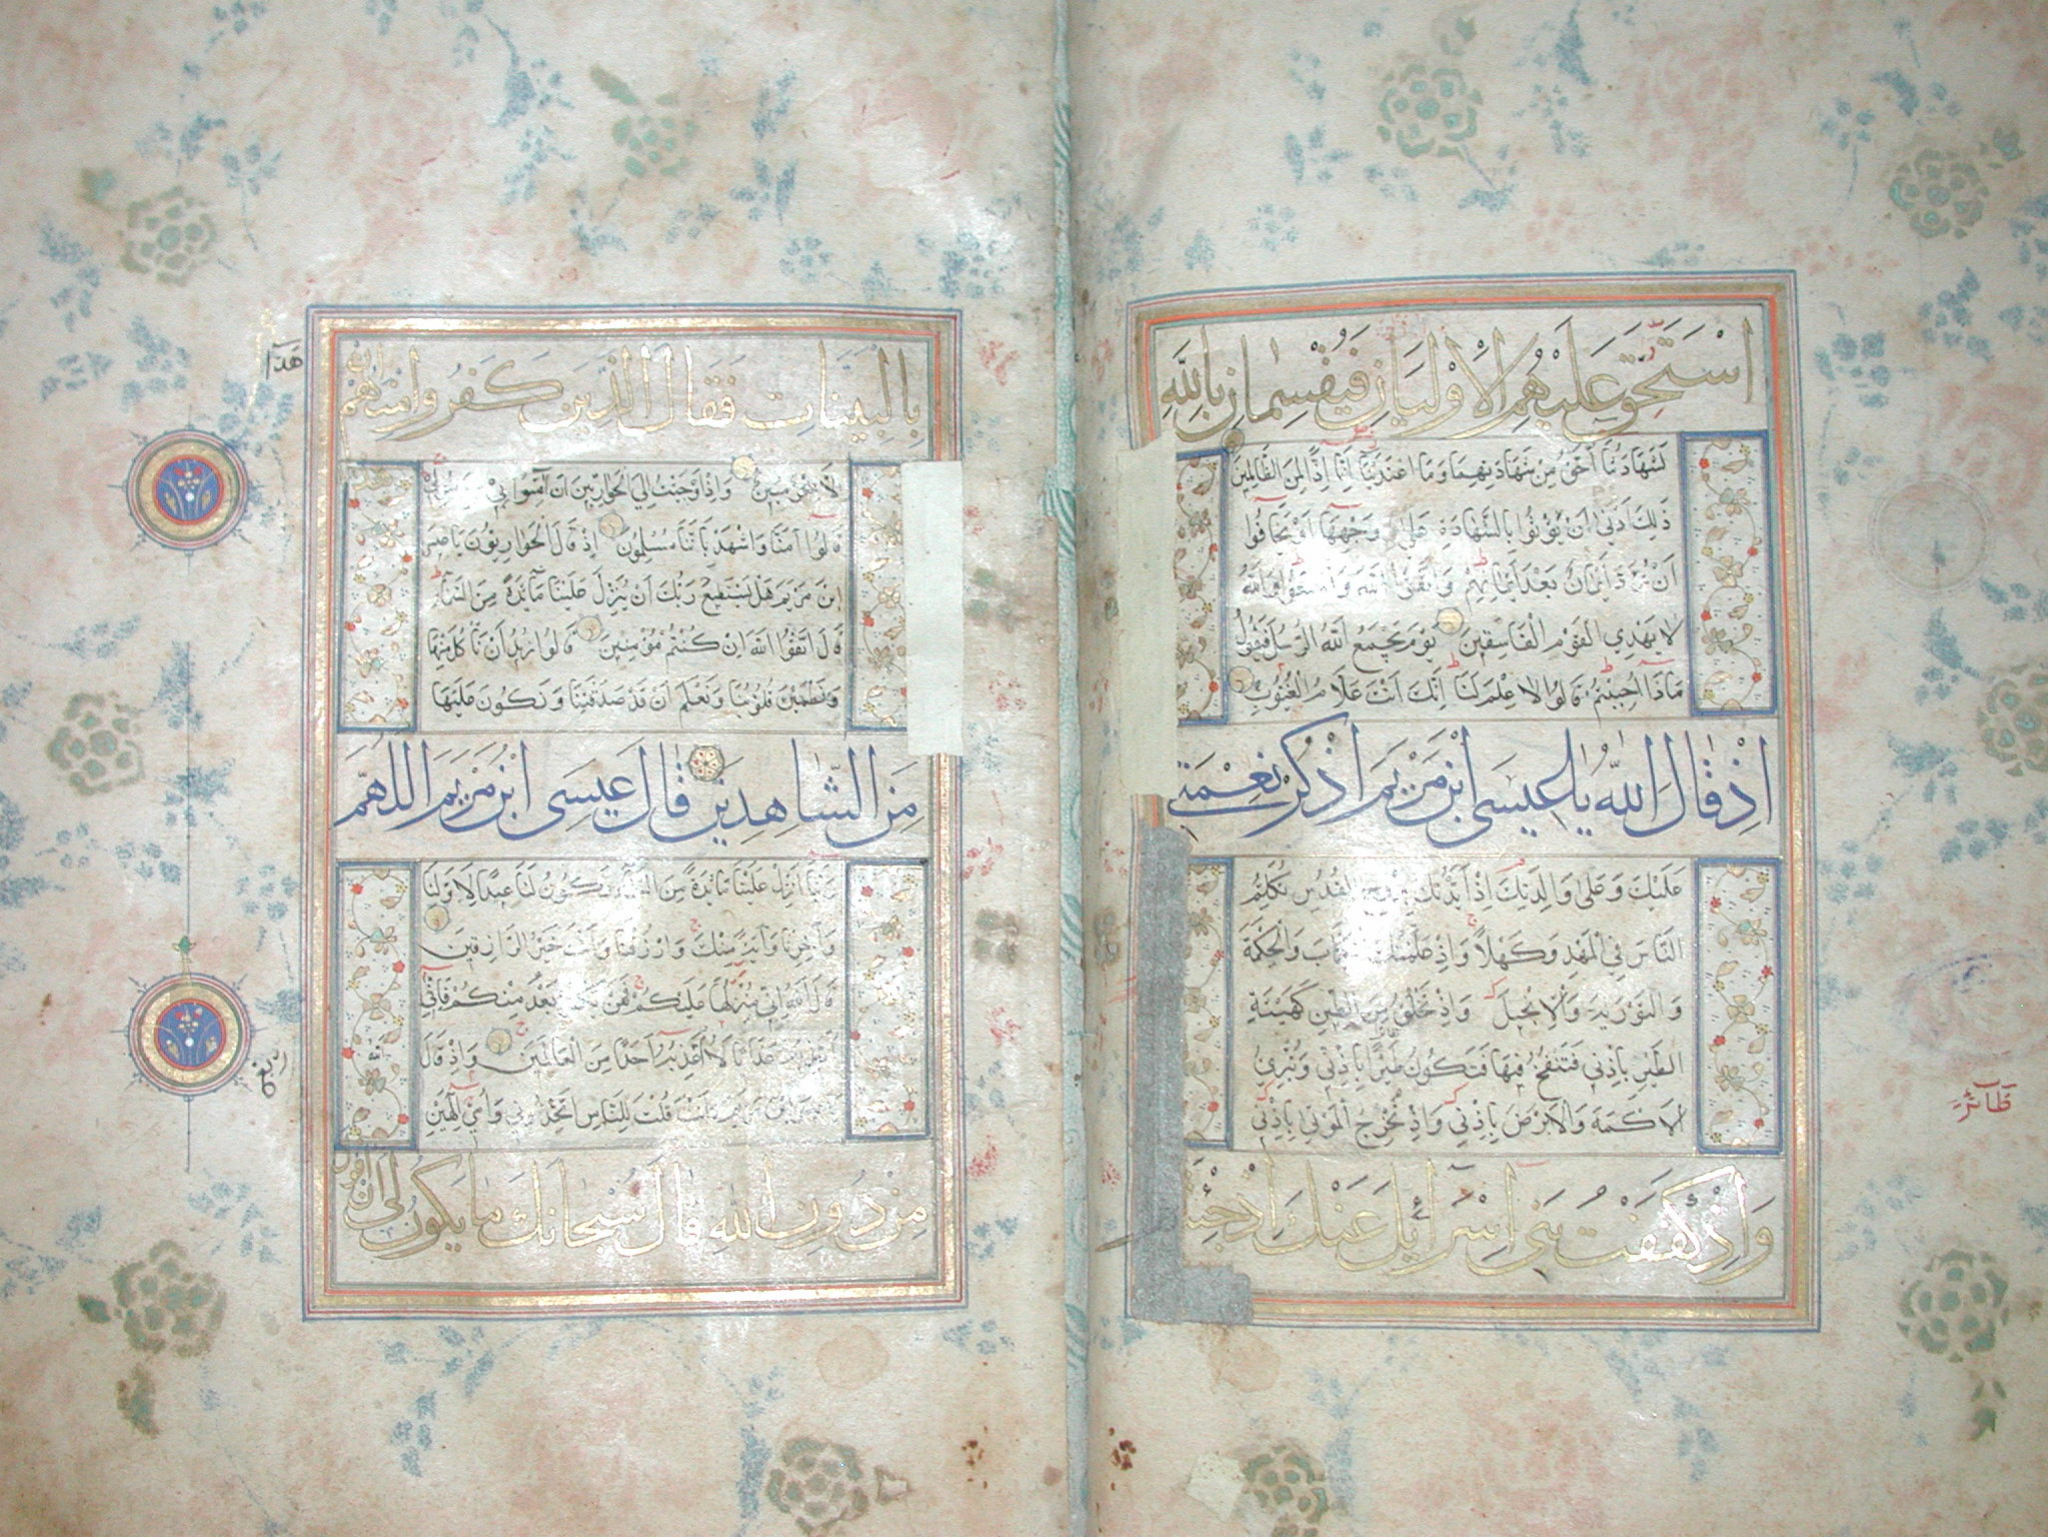 اسْتَحَقَّ عَلَيْهِمُ الْأَوْلَيَانِ فَيُقْسِمَانِ بِاللَّهِ
لَشَهَادَتُنَا أَحَقُّ مِنْ شَهَادَتِهِمَا وَمَا اعْتَدَيْنَا إِنَّا إِذًا لَمِنَ الظَّالِمِينَ
ذَلِكَ أَدْنَى أَنْ يَأْتُوا بِالشَّهَادَةِ عَلَى وَجْهِهَا أَوْ يَخَافُوا
أَنْ تُرَدَّ أَيْمَانٌ بَعْدَ أَيْمَانِهِمْ وَاتَّقُوا اللَّهَ وَاسْمَعُوا وَاللَّهُ
لَا يَهْدِي الْقَوْمَ الْفَاسِقِينَ يَوْمَ يَجْمَعُ اللَّهُ الرُّسُلَ فَيَقُولُ
مَاذَا أُجِبْتُمْ قَالُوا لَا عِلْمَ لَنَا إِنَّكَ أَنْتَ عَلَّامُ الْغُيُوبِ
إِذْ قَالَ اللَّهُ يَا عِيسَى ابْنَ مَرْيَمَ اذْكُرْ نِعْمَتِي
عَلَيْكَ وَعَلَى وَالِدَتِكَ إِذْ أَيَّدْتُكَ بِرُوحِ الْقُدُسِ تُكَلِّمُ
النَّاسَ فِي الْمَهْدِ وَكَهْلًا وَإِذْ عَلَّمْتُكَ الْكِتَابَ وَالْحِكْمَةَ
وَالتَّوْرَيةَ وَالْإِنْجِيلَ وَإِذْ تَخْلُقُ مِنَ الطِّينِ كَهَيْئَةِ
الطَّيْرِ بِإِذْنِي فَتَنْفُخُ فِيهَا فَتَكُونُ طَيْرًا بِإِذْنِي وَتُبْرِئُ
الْأَكْمَهَ وَالْأَبْرَصَ بِإِذْنِي وَإِذْ تُخْرِجُ الْمَوْتَى بِإِذْنِي
وَإِذْ كَفَفْتُ بَنِي إِسْرَائِيلَ عَنْكَ إِذْ جِئْتَهُمْ
طَائِرً
بِالْبَيِّنَاتِ فَقَالَ الَّذِينَ كَفَرُوا مِنْهُمْ إِنْ
هَذَا
وَإِذْ أَوْحَيْتُ إِلَى الْحَوَارِيِّينَ أَنْ آمِنُوا بِي
قَالُوا آمَنَّا وَاشْهَدْ بِأَنَّنَا مُسْلِمُونَ إِذْ قَالَ الْحَوَارِيُّونَ يَا عِيسَى
ابْنَ مَرْيَمَ هَلْ يَسْتَطِيعُ رَبُّكَ أَنْ يُنَزِّلَ عَلَيْنَا مَائِدَةً مِنَ السَّمَاءِ
قَالَ اتَّقُوا اللَّهَ إِنْ كُنْتُمْ مُؤْمِنِينَ قَالُوا نُرِيدُ أَنْ نَأْكُلَ مِنْهَا
وَتَطْمَئِنَّ قُلُوبُنَا وَنَعْلَمَ أَنْ قَدْ صَدَقْتَنَا وَنَكُونَ عَلَيْهَا
مِنَ الشَّاهِدِينَ قَالَ عِيسَى ابْنُ مَرْيَمَ اللَّهُمَّ
رَبَّنَا أَنْزِلْ عَلَيْنَا مَائِدَةً مِنَ السَّمَاءِ تَكُونُ لَنَا عِيدًا لِأَوَّلِنَا
وَآخِرِنَا وَآيَةً مِنْكَ وَارْزُقْنَا وَأَنْتَ خَيْرُ الرَّازِقِينَ
قَالَ اللَّهُ إِنِّي مُنَزِّلُهَا عَلَيْكُمْ فَمَنْ يَكْفُرْ بَعْدُ مِنْكُمْ فَإِنِّي
أُعَذِّبُهُ عَذَابًا لَا أُعَذِّبُهُ أَحَدًا مِنَ الْعَالَمِينَ وَإِذْ قَالَ اللَّهُ
أَنْتَ قُلْتَ لِلنَّاسِ اتَّخِذُونِي وَأُمِّيَ إِلَهَيْنِ
مِنْ دُونِ اللَّهِ قَالَ سُبْحَانَكَ مَا يَكُونُ لِي أَنْ أَقُولَ